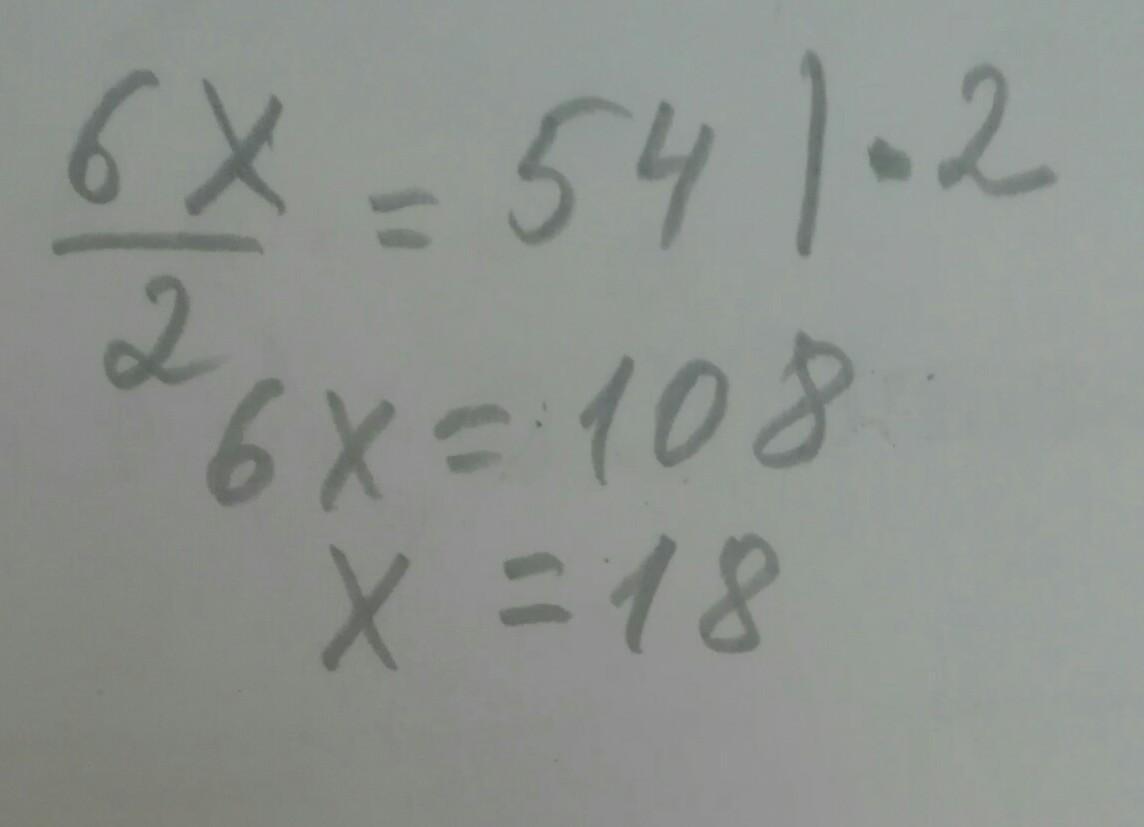 6x/2 = 54 | · 2
6x = 108
x = 18